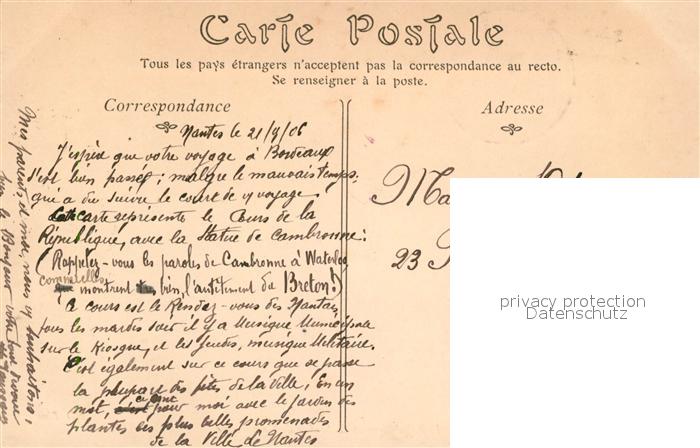 Carte Postale
Tous les pays étrangers n'acceptent pas la correspondance au recto.
Se renseigner à la poste.
Correspondance
Adresse
Nantes le 21/9/06
J'espère que votre voyage à Bordeaux
s'est bien passé; malgré le mauvais temps,
qui a du suivre le court de voyage
carte représente le Cours de la
République, avec la Statue de Cambronne:
(Rappelez-vous les paroles de Cambronne à Waterloo,
comme elles montrent bien, l'entêtement du Breton!)
Ce cours est le Rendez-vous des Nantais
tous les mardis soir il y a Musique Municipale
sur le Kiosque, et les Jeudis, musique Militaire.
C'est également sur ce cours que se passe
la plupart des fêtes de la Ville; En un
mot, pour moi avec le Jardin des
plantes les plus belles promenades
de la Ville de Nantes
Mes parents et moi, nous
Bonjour votre tout dévoué
Ma
23
privacy protection
Datenschutz